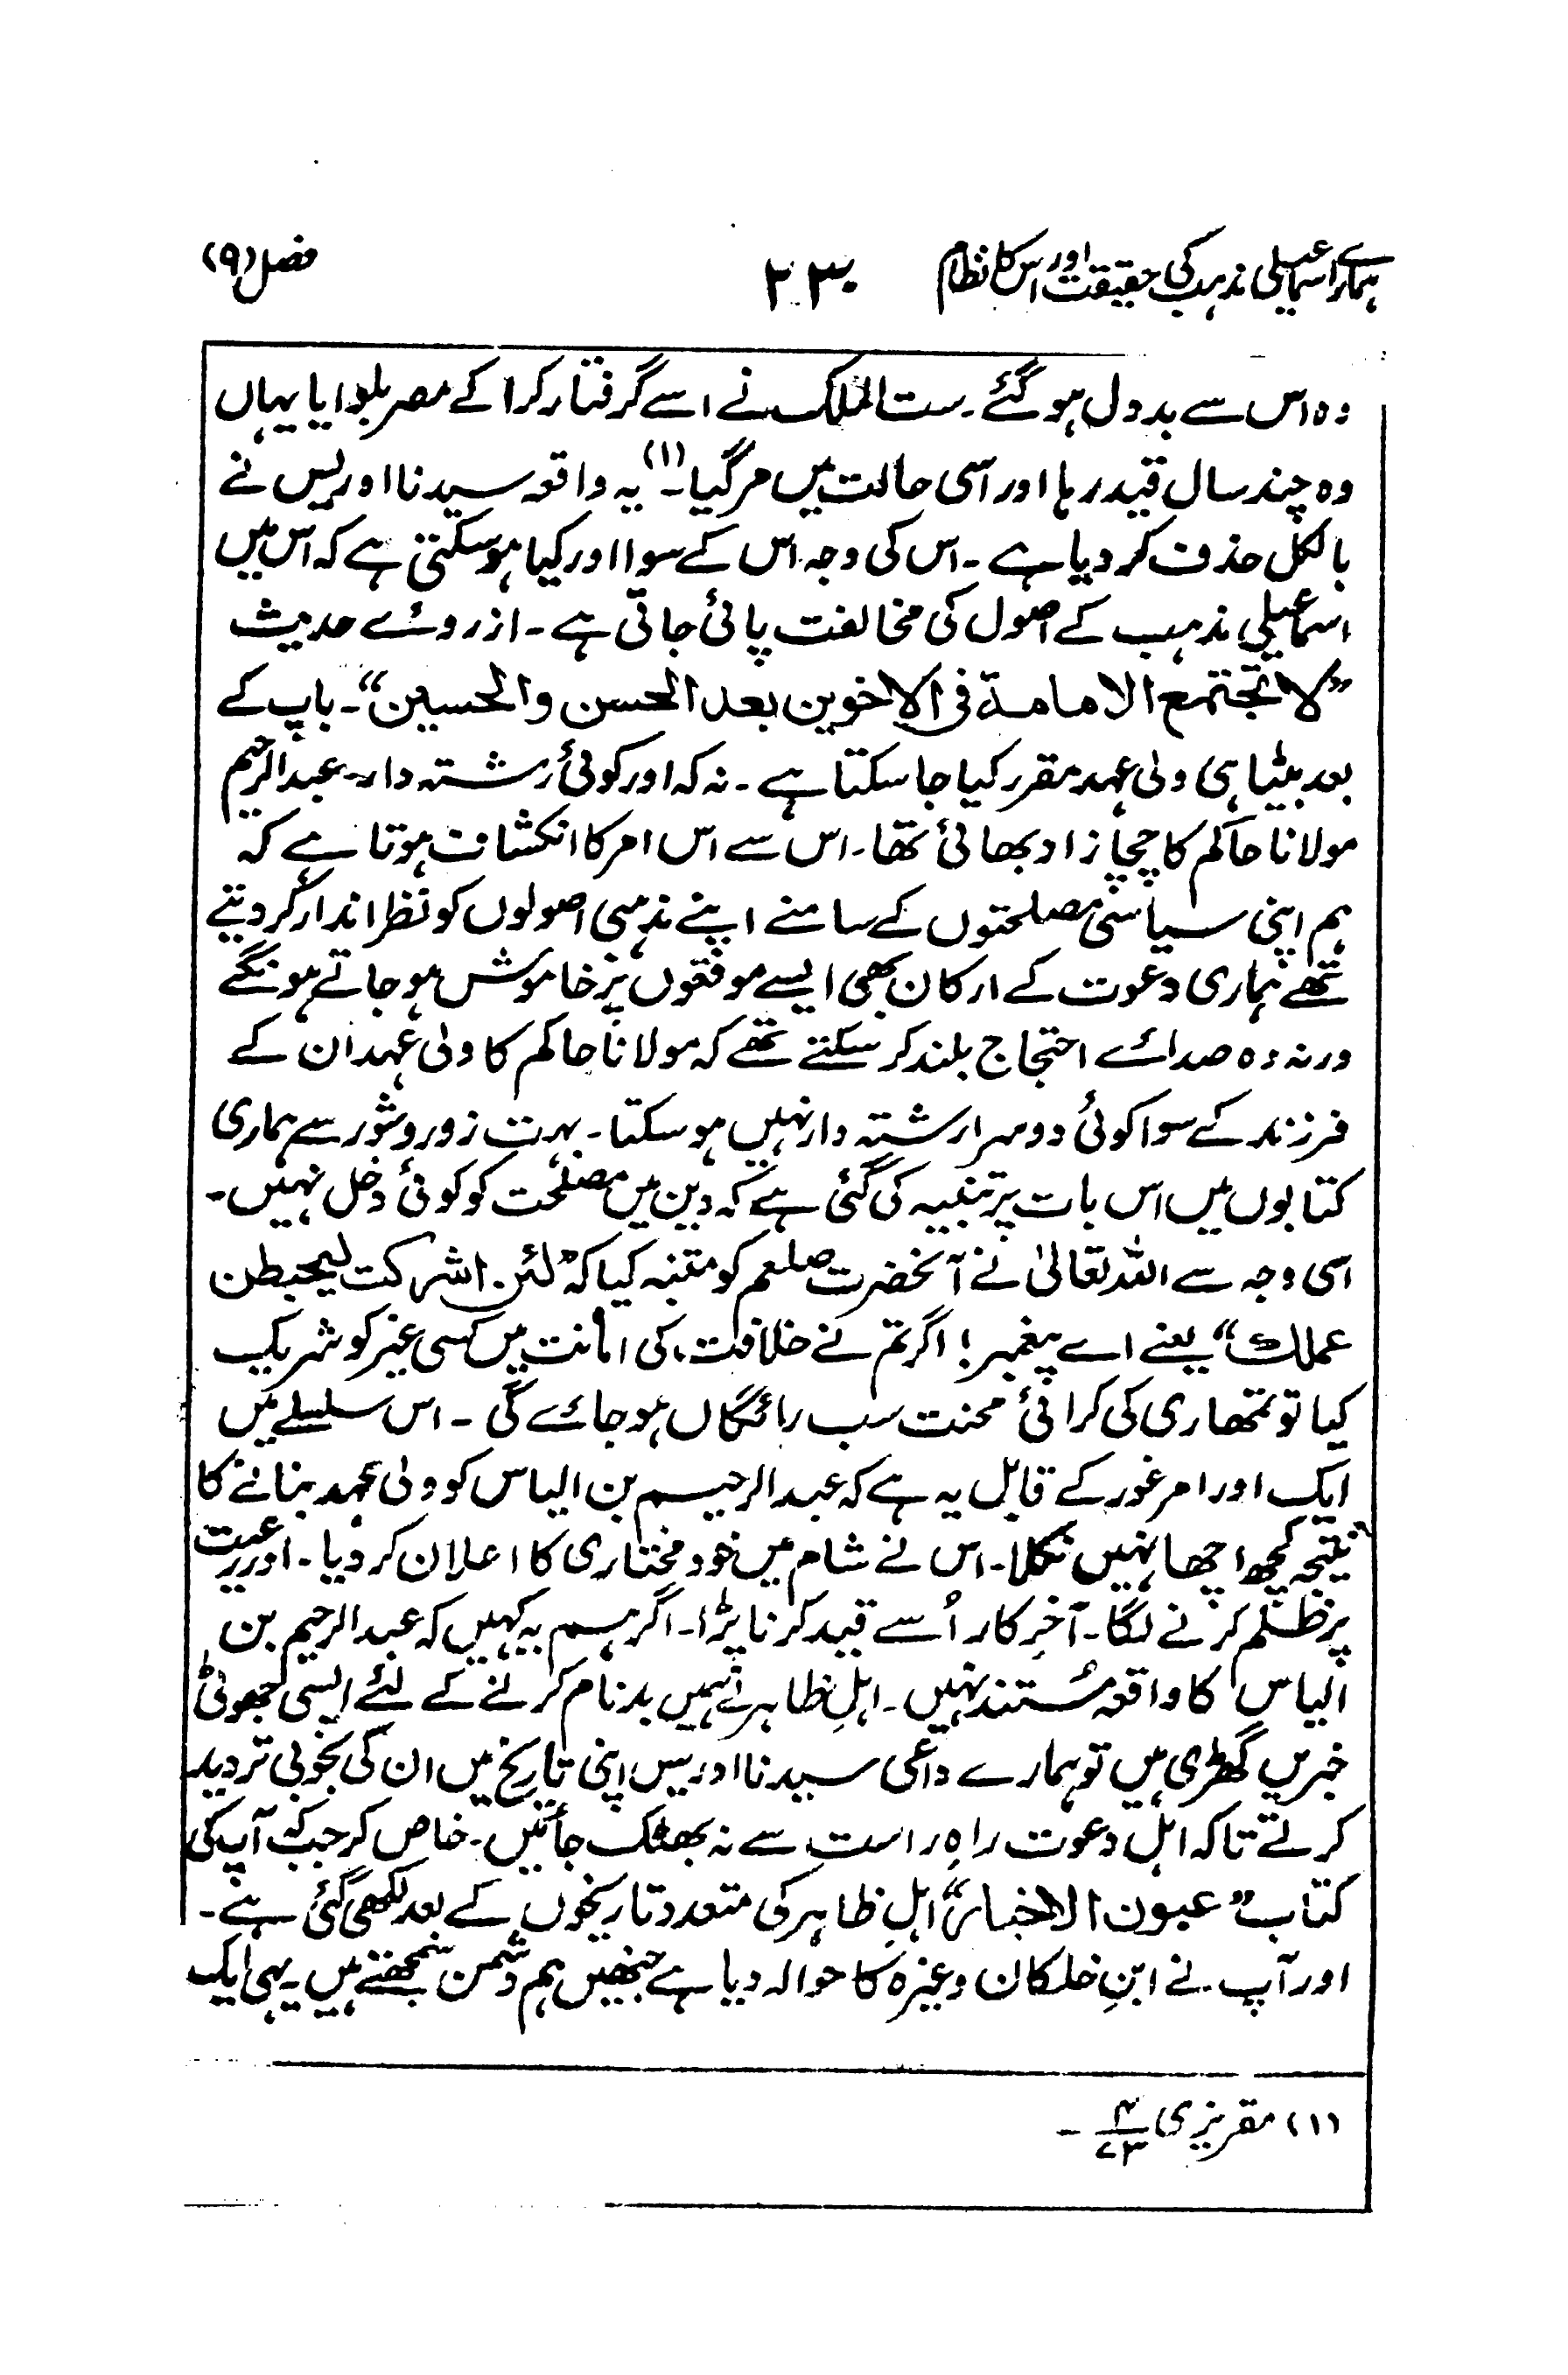 ہمارے اسماعیلی مذہب کی حقیقت اور اس کا نظام
۲۳۰
فصل (۹)
وہ اس سے بددل ہو گئے۔ ست الملک نے اسے گرفتار کرا کے مصر بلوایا یہاں
وہ چند سال قید رہا اور اسی حالت میں مر گیا۔(۱) یہ واقعہ سیدنا ادریس نے
بالکل حذف کر دیا ہے۔ اس کی وجہ اس کے سوا اور کیا ہو سکتی ہے کہ اس میں
اسماعیلی مذہب کے اصول کی مخالفت پائی جاتی ہے۔ از روئے حدیث
”لا تجتمع الامامة فی الاخوین بعد الحسن والحسین“۔ باپ کے
بعد بیٹا ہی ولی عہد مقرر کیا جا سکتا ہے۔ نہ کہ اور کوئی رشتہ دار۔ عبدالرحیم
مولانا حاکم کا چچا زاد بھائی تھا۔ اس سے اس امر کا انکشاف ہوتا ہے کہ
ہم اپنی سیاسی مصلحتوں کے سامنے اپنے مذہبی اصولوں کو نظر انداز کر دیتے
تھے ہماری دعوت کے ارکان بھی ایسے موقعوں پر خاموش ہو جاتے ہونگے
ورنہ وہ صدائے احتجاج بلند کر سکتے تھے کہ مولانا حاکم کا ولی عہد ان کے
فرزند کے سوا کوئی دوسرا رشتہ دار نہیں ہو سکتا۔ بہت زور و شور سے ہماری
کتابوں میں اس بات پر تنبیہ کی گئی ہے کہ دین میں مصلحت کو کوئی دخل نہیں۔
اسی وجہ سے اللہ تعالیٰ نے آنحضرت صلعم کو متنبہ کیا کہ ”لئن اشرکت لیحبطن
عملك“ یعنے اے پیغمبر! اگر تم نے خلافت کی امانت میں کسی غیر کو شریک
کیا تو تمھاری کی کرائی محنت سب رائگاں ہو جائے گی۔ اس سلسلے میں
ایک اور امر غور کے قابل یہ ہے کہ عبدالرحیم بن الیاس کو ولی عہد بنانے کا
نتیجہ کچھ اچھا نہیں نکلا۔ اس نے شام میں خود مختاری کا اعلان کر دیا۔ اور رعیت
پر ظلم کرنے لگا۔ آخرِ کار اُسے قید کرنا پڑا۔ اگر ہم یہ کہیں کہ عبدالرحیم بن
الیاس کا واقعہ مُستند نہیں۔ اہلِ ظاہر نے ہمیں بدنام کرنے کے لئے ایسی جھوٹی
خبریں گھڑی ہیں تو ہمارے داعی سیدنا ادریس اپنی تاریخ میں ان کی بخوبی تردید
کرتے تاکہ اہلِ دعوت راہِ راست سے نہ بھٹک جائیں۔ خاص کر جب کہ آپ کی
کتاب ”عیون الاخبار“ اہلِ ظاہر کی متعدد تاریخوں کے بعد لکھی گئی ہے۔
اور آپ نے ابنِ خلکان وغیرہ کا حوالہ دیا ہے جنھیں ہم دشمن سمجھتے ہیں۔ یہی ایک
(۱) مقریزی ۴/۷۳ ۔